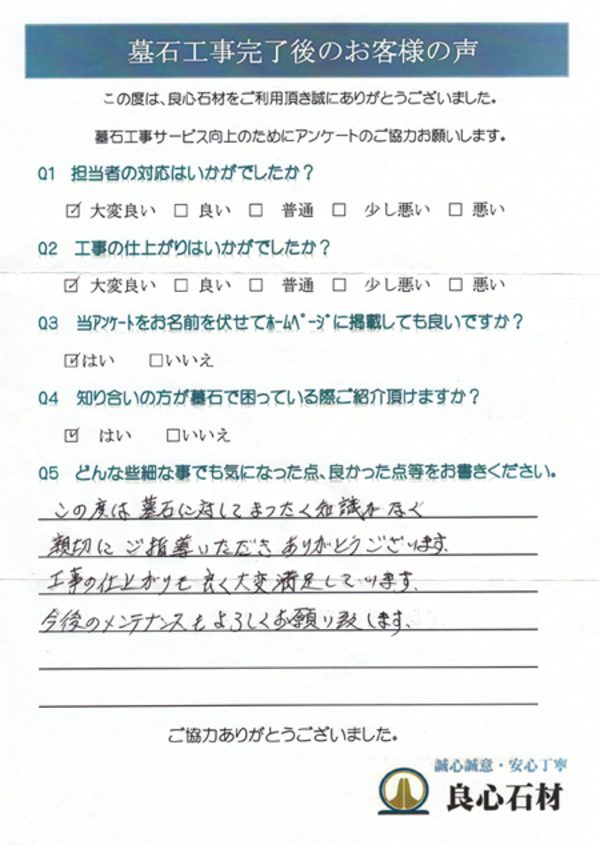 墓石工事完了後のお客様の声
この度は、良心石材をご利用頂き誠にありがとうございました。
墓石工事サービス向上のためにアンケートのご協力お願いします。
Q1 担当者の対応はいかがでしたか？
☑ 大変良い □ 良い □ 普通 □ 少し悪い □ 悪い
Q2 工事の仕上がりはいかがでしたか？
☑ 大変良い □ 良い □ 普通 □ 少し悪い □ 悪い
Q3 当ｱﾝｹｰﾄをお名前を伏せてﾎｰﾑﾍﾟｰｼﾞに掲載しても良いですか？
☑はい □いいえ
Q4 知り合いの方が墓石で困っている際ご紹介頂けますか？
☑ はい □いいえ
Q5 どんな些細な事でも気になった点、良かった点等をお書きください。
この度は墓石に対してまったく知識がなく
親切にご指導いただきありがとうございます。
工事の仕上がりも良く大変満足しています。
今後のメンテナンスもよろしくお願り致します。
ご協力ありがとうございました。
誠心誠意・安心丁寧
良心石材